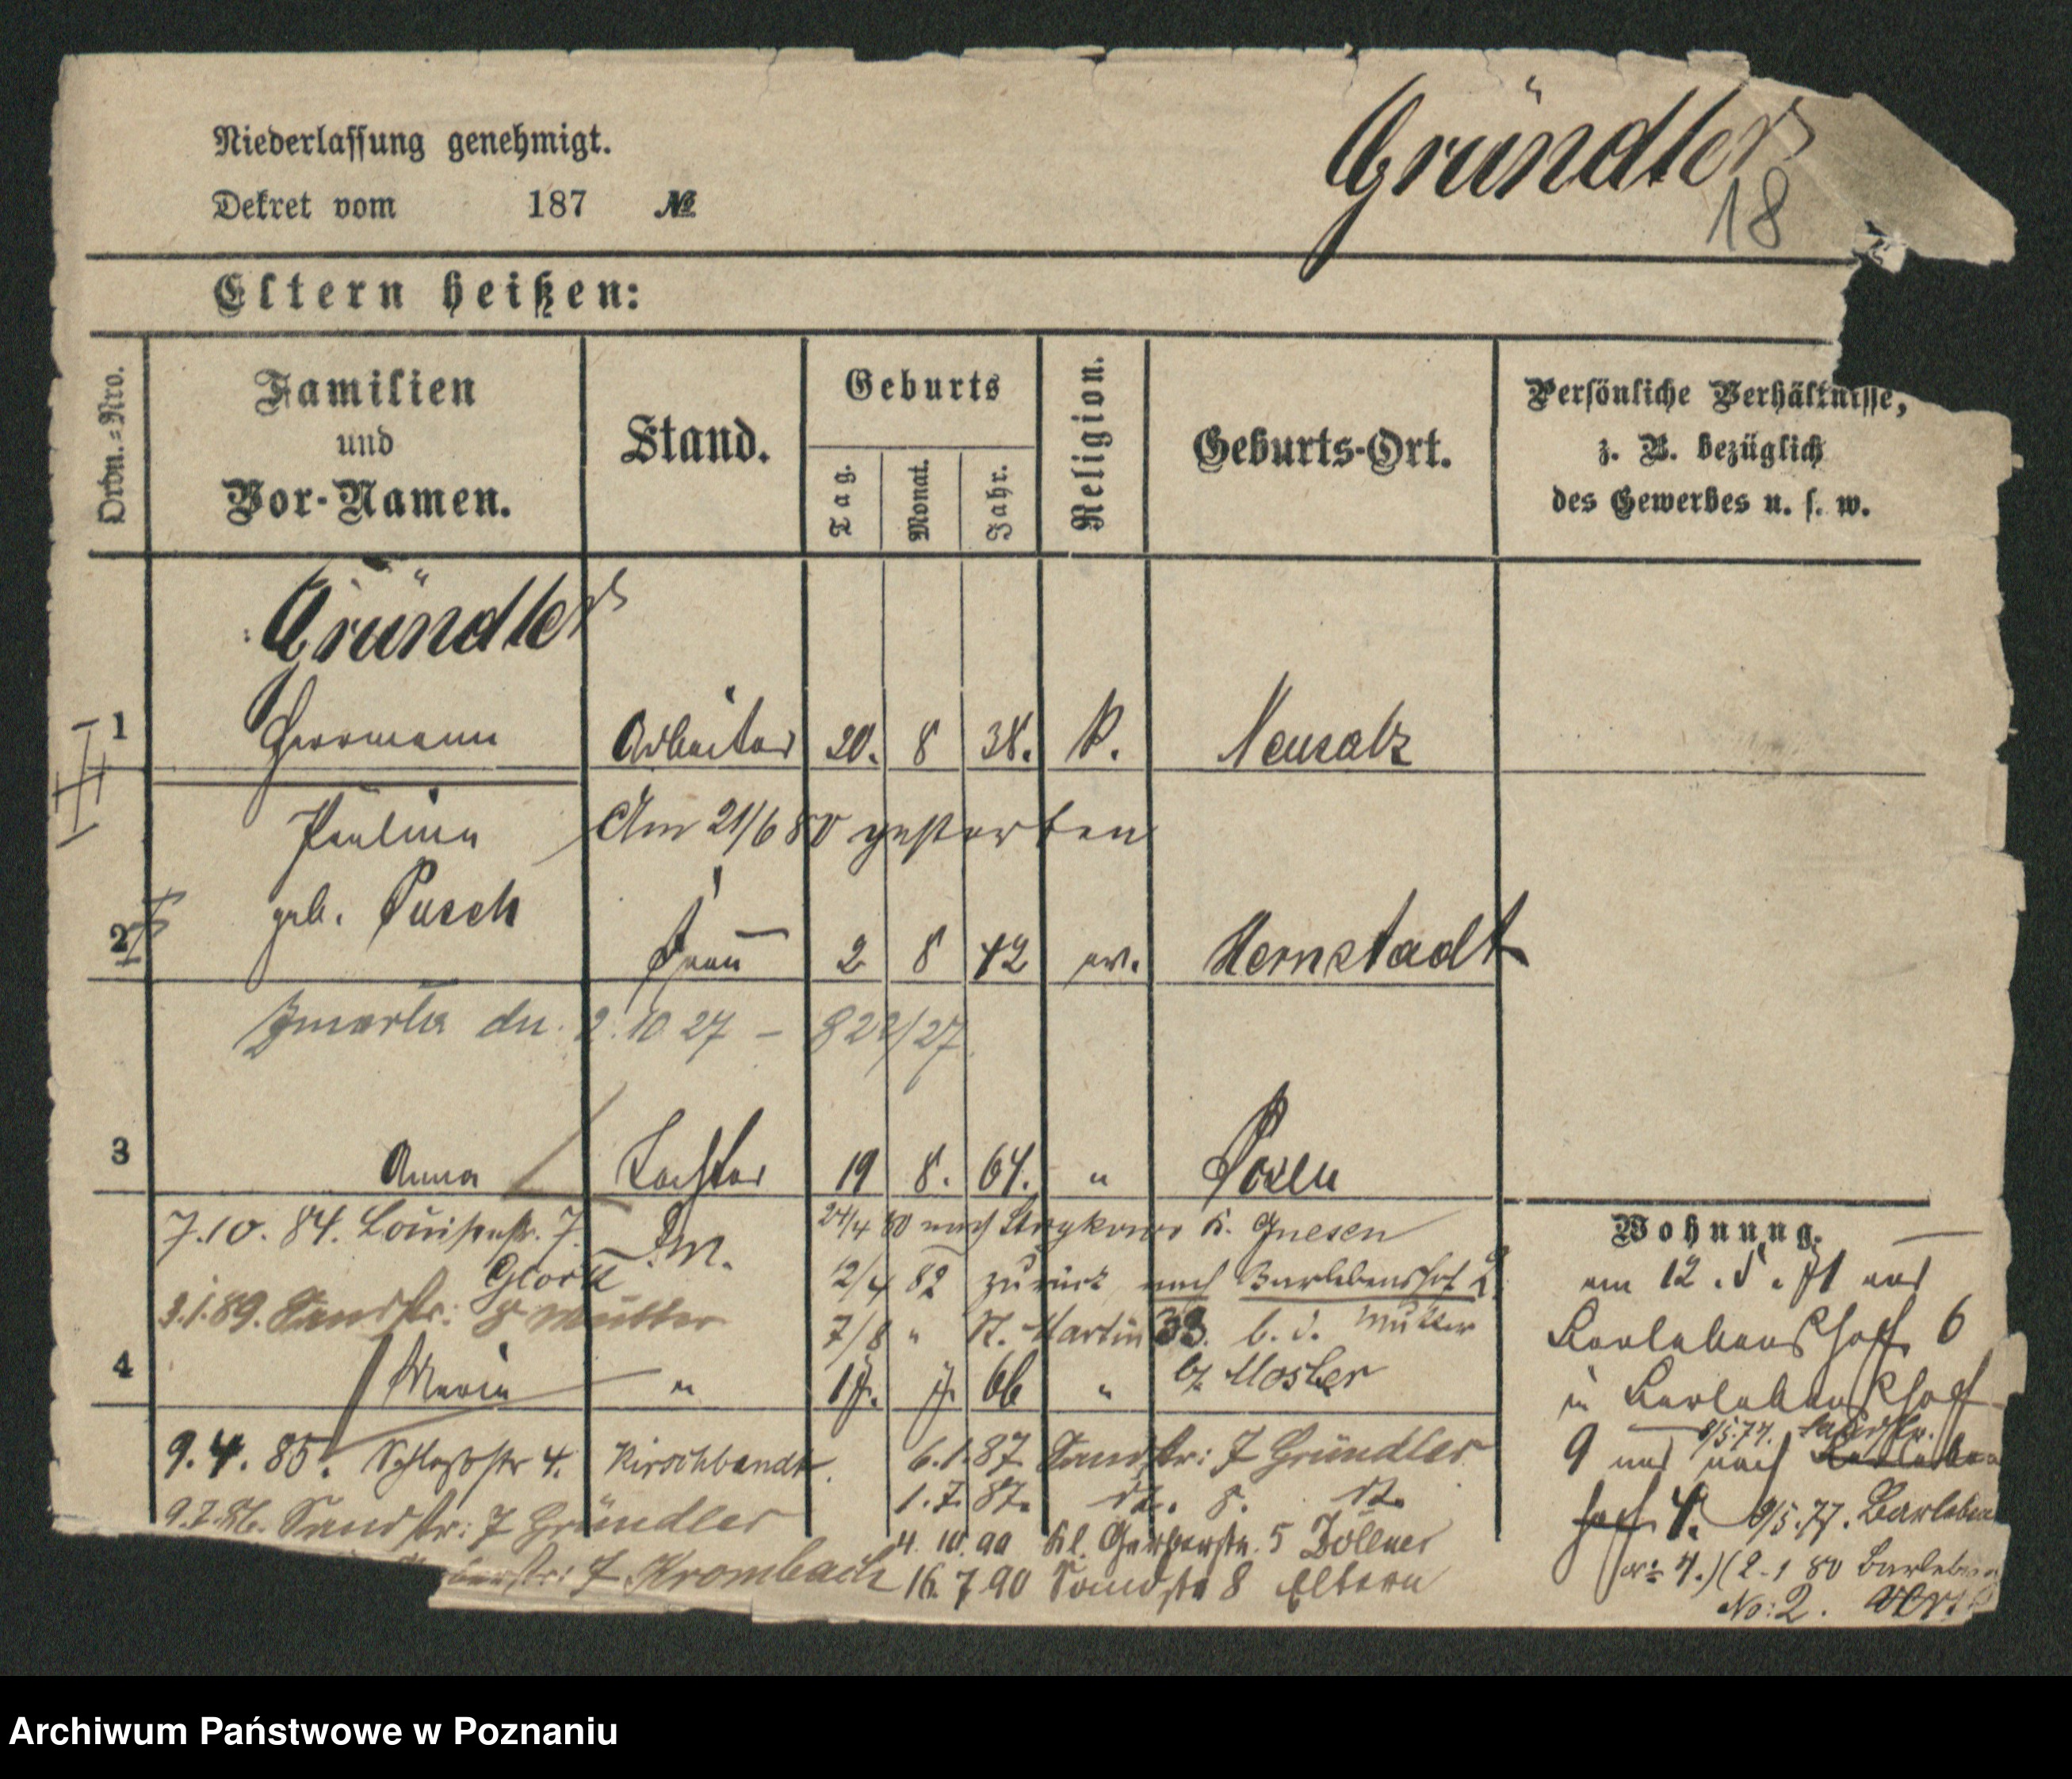 Niederlassung genehmigt.
Gründler
Dekret vom 187 №
18
Eltern heißen:
Ordn.-Nro.
Familien und Vor-Namen.
Stand.
Geburts
Tag.
Monat.
Jahr.
Religion.
Geburts-Ort.
Persönliche Verhältnisse,
z. B. bezüglich
des Gewerbes u. s. w.
Gründler
1 Herrmann Arbeiter 20. 8 38. K. Neusalz
Paulina Am 21/6 80 gestorben
geb. Pusch
2 Frau 2 8 42 ev. Hernstadt
Zmarła dn. 2.10 27 – 822/27
3 Anna Tochter 19 8. 64. " Posen
7.10. 84. Louisenstr. 7.
24/4 80 nach K. Gnesen
12/4 82 zurück nach Berlebenshof 2
3.1.89. Sandstr: 8 Mutter
7/8 " St. Martin 33. b. d. Mutter
bz Mosler
4 Maria " 17. 7. 66 "
9.4. 85. Schloßstr 4. 6.1.87. Sandstr: 7 Gründler
9.7.86. Sandstr: 7 Gründler 1.7.87. dt. 8. dt.
4. 10. 90 Kl. Gerberstr. 5
7 Krombach 16. 7 90 Sandstr 8 Eltern
Wohnung.
am 12. 5. 71 aus
6
in
9 und nach
8/5.77.
4. 9/5.77.
4.) (2-1 80
No: 2.
Archiwum Państwowe w Poznaniu